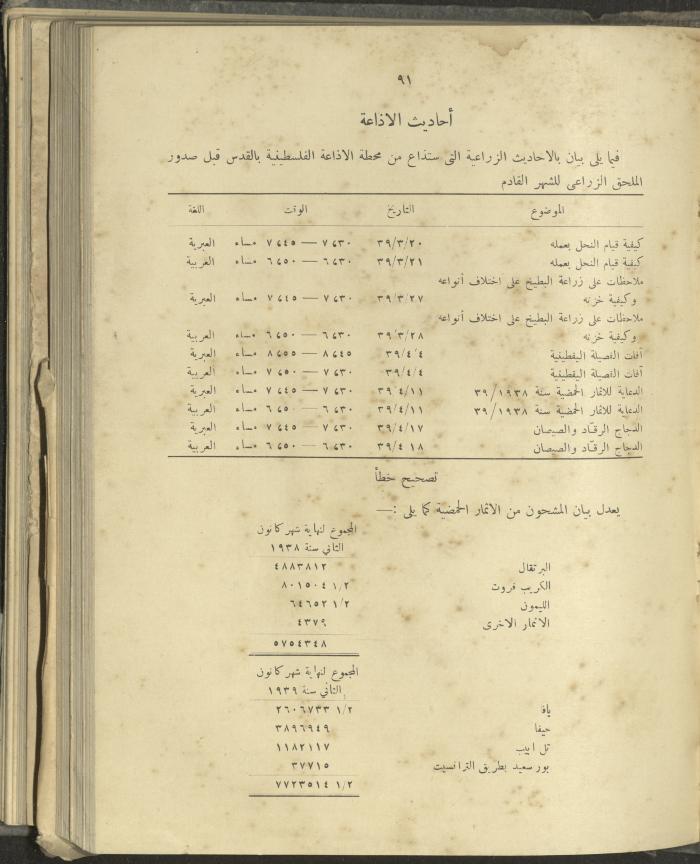 ٩١
أحاديث الاذاعة
فيما يلى بيان بالاحاديث الزراعية التى ستذاع من محطة الاذاعة الفلسطينية بالقدس قبل صدور
الملحق الزراعى للشهر القادم
الموضوع التاريخ الوقت اللغة
كيفية قيام النحل بعمله ٣٩/٣/٢٠ ٧،٣٠ — ٧،٤٥ مساء العبرية
كيفية قيام النحل بعمله ٣٩/٣/٢١ ٦،٣٠ — ٦،٥٠ مساء العربية
ملاحظات على زراعة البطيخ على اختلاف أنواعه
وكيفية خزنه ٣٩/٣/٢٧ ٧،٣٠ — ٧،٤٥ مساء العبرية
ملاحظات على زراعة البطيخ على اختلاف أنواعه
وكيفية خزنه ٣٩/٣/٢٨ ٦،٣٠ — ٦،٥٠ مساء العربية
آفات الفصيلة اليقطينية ٣٩/٤/٤ ٨،٤٥ — ٨،٥٥ مساء العبرية
آفات الفصيلة اليقطينية ٣٩/٤/٤ ٧،٣٠ — ٧،٥٠ مساء العربية
الدعاية للاثمار الحمضية سنة ٣٩/١٩٣٨ ٣٩/٤/١١ ٧،٣٠ — ٧،٤٥ مساء العبرية
الدعاية للاثمار الحمضية سنة ٣٩/١٩٣٨ ٣٩/٤/١١ ٦،٣٠ — ٦،٥٠ مساء العربية
الدجاج الرقاد والصيصان ٣٩/٤/١٧ ٧،٣٠ — ٧،٤٥ مساء العبرية
الدجاج الرقاد والصيصان ٣٩/٤/١٨ ٦،٣٠ — ٦،٥٠ مساء العربية
تصحيح خطأ
يعدل بيان المشحون من الاثمار الحمضية كما يلى :—
المجموع لنهاية شهر كانون
الثانى سنة ١٩٣٨
البرتقال ٤٨٨٣٨١٢
الكريب فروت ٨٠١٥٠٤ ١/٢
الليمون ٦٤٦٥٢ ١/٢
الاثمار الاخرى ٤٣٧٩
٥٧٥٤٣٤٨
المجموع لنهاية شهر كانون
الثانى سنة ١٩٣٩
يافا ٢٦٠٦٧٣٣ ١/٢
حيفا ٣٨٩٦٩٤٩
تل ابيب ١١٨٢١١٧
بور سعيد بطريق الترانسيت ٣٧٧١٥
٧٧٢٣٥١٤ ١/٢